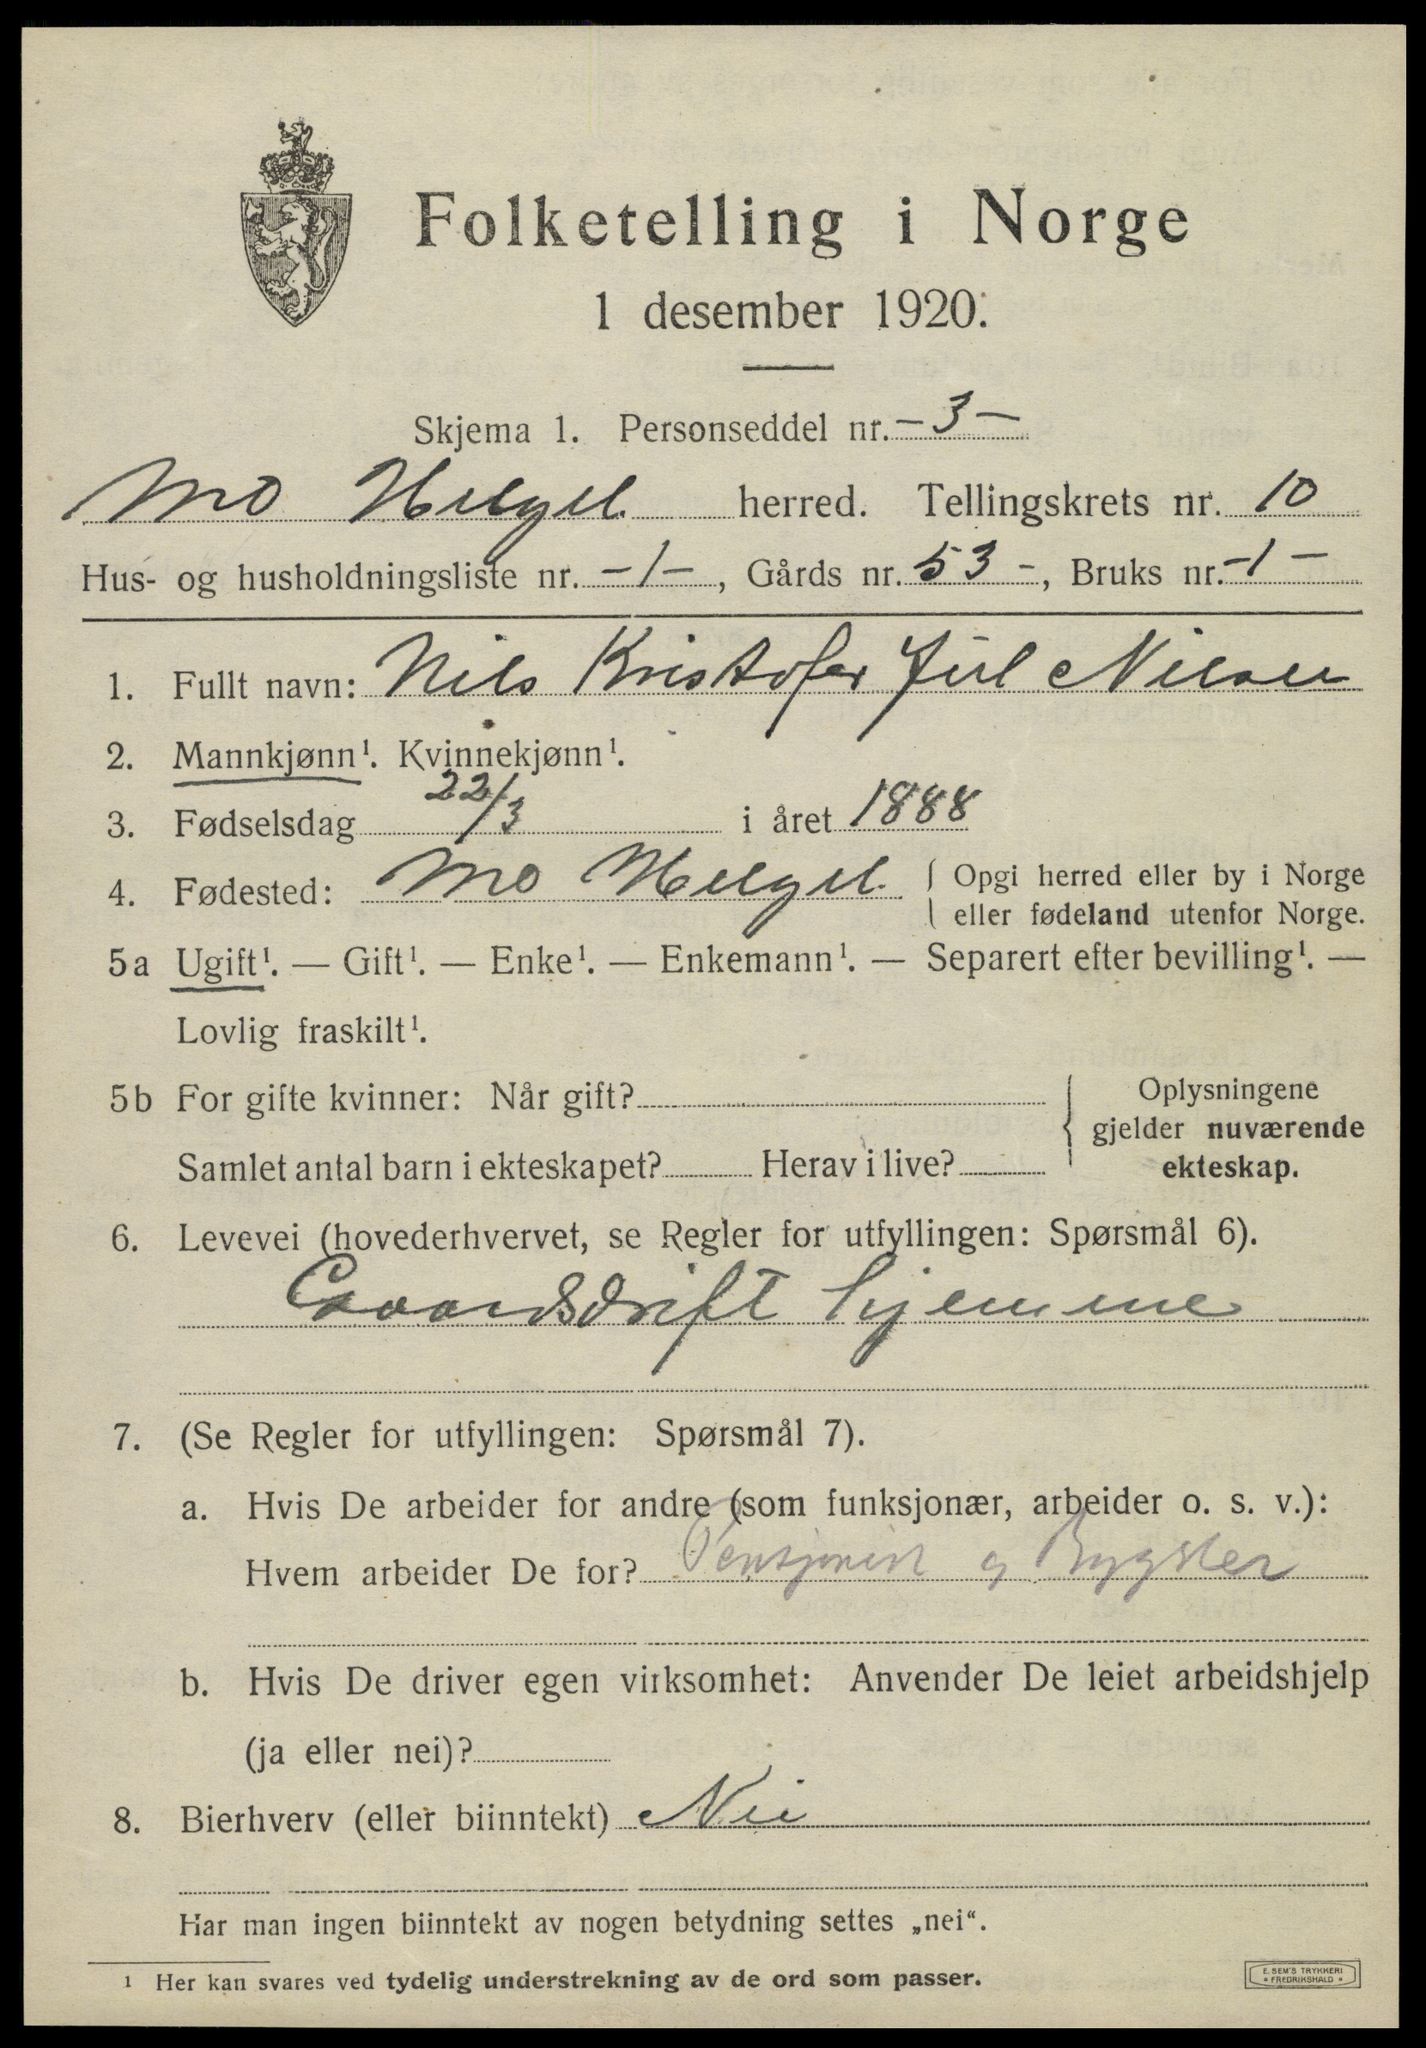 Folketelling i Norge
1 desember 1920.
Skjema 1. Personseddel nr. -3-
Mo Helgel. herred. Tellingskrets nr. 10
Hus- og husholdningsliste nr. -1-, Gårds nr. 53-, Bruks nr. -1-
1. Fullt navn: Nils Kristofer Juul Nilsen
2. Mannkjønn¹. Kvinnekjønn¹.
3. Fødselsdag 22/3 i året 1888
4. Fødested: Mo Helgel. { Opgi herred eller by i Norge
eller fødeland utenfor Norge.
5a Ugift¹. — Gift¹. — Enke¹. — Enkemann¹. — Separert efter bevilling¹. —
Lovlig fraskilt¹.
5b For gifte kvinner: Når gift?
Samlet antal barn i ekteskapet? Herav i live?
Oplysningene
gjelder nuværende
ekteskap.
6. Levevei (hovederhvervet, se Regler for utfyllingen: Spørsmål 6).
Gaardsdrift hjemme
7. (Se Regler for utfyllingen: Spørsmål 7).
a. Hvis De arbeider for andre (som funksjonær, arbeider o. s. v.):
Hvem arbeider De for? Pensjonist og Bygsler
b. Hvis De driver egen virksomhet: Anvender De leiet arbeidshjelp
(ja eller nei)?
8. Bierhverv (eller biinntekt) Nei
Har man ingen biinntekt av nogen betydning settes „nei“.
¹ Her kan svares ved tydelig understrekning av de ord som passer.
E. SEM'S TRYKKERI
* FREDRIKSHALD *